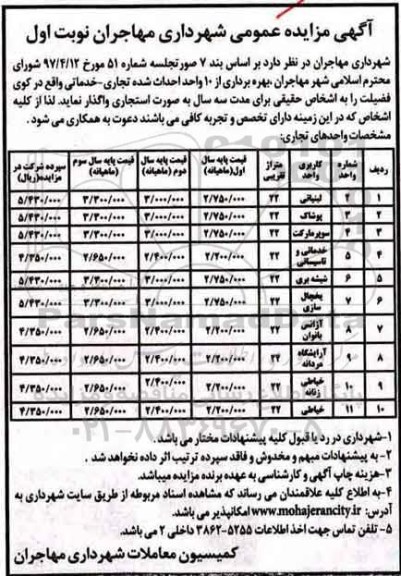 آگهی مزایده عمومی شهرداری مهاجران نوبت اول
شهرداری مهاجران در نظر دارد بر اساس بند ۷ صورتجلسه شماره ۵۱ مورخ ۹۷/۴/۱۲ شورای
محترم اسلامی شهر مهاجران ،بهره برداری از ۱۰ واحد احداث شده تجاری-خدماتی واقع در کوی
فضیلت را به اشخاص حقیقی برای مدت سه سال به صورت استجاری واگذار نماید. لذا از کلیه
اشخاص که در این زمینه دارای تخصص و تجربه کافی می باشند دعوت به همکاری می شود .
مشخصات واحدهای تجاری:
ردیف شماره واحد کاربری واحد متراژ تقریبی قیمت پایه سال اول(ماهیانه) قیمت پایه سال دوم (ماهیانه) قیمت پایه سال سوم (ماهیانه) سپرده شرکت در مزایده(ریال)
۱ ۲ لبنیاتی ۲۲ ۲/۷۵۰/۰۰۰ ۳/۰۰۰/۰۰۰ ۳/۳۰۰/۰۰۰ ۵/۴۳۰/۰۰۰
۲ ۳ پوشاک ۲۲ ۲/۷۵۰/۰۰۰ ۳/۰۰۰/۰۰۰ ۳/۳۰۰/۰۰۰ ۵/۴۳۰/۰۰۰
۳ ۴ سوپرمارکت ۲۲ ۲/۷۵۰/۰۰۰ ۳/۰۰۰/۰۰۰ ۳/۳۰۰/۰۰۰ ۵/۴۳۰/۰۰۰
۴ ۵ خدماتی و تاسیساتی ۲۲ ۲/۲۰۰/۰۰۰ ۲/۴۰۰/۰۰۰ ۲/۶۵۰/۰۰۰ ۴/۳۵۰/۰۰۰
۵ ۶ شیشه بری ۲۲ ۲/۷۵۰/۰۰۰ ۳/۰۰۰/۰۰۰ ۳/۳۰۰/۰۰۰ ۵/۴۳۰/۰۰۰
۶ ۷ یخچال سازی ۲۲ ۲/۷۵۰/۰۰۰ ۳/۰۰۰/۰۰۰ ۳/۳۰۰/۰۰۰ ۵/۴۳۰/۰۰۰
۷ ۸ آژانس بانوان ۲۲ ۲/۲۰۰/۰۰۰ ۲/۴۰۰/۰۰۰ ۲/۶۵۰/۰۰۰ ۴/۳۵۰/۰۰۰
۸ ۹ آرایشگاه مردانه ۲۲ ۲/۲۰۰/۰۰۰ ۲/۴۰۰/۰۰۰ ۲/۶۵۰/۰۰۰ ۴/۳۵۰/۰۰۰
۹ ۱۰ خیاطی زنانه ۲۲ ۲/۲۰۰/۰۰۰ ۲/۴۰۰/۰۰۰ ۲/۶۵۰/۰۰۰ ۴/۳۵۰/۰۰۰
۱۰ ۱۱ خیاطی ۲۲ ۲/۲۰۰/۰۰۰ ۲/۴۰۰/۰۰۰ ۲/۶۵۰/۰۰۰ ۴/۳۵۰/۰۰۰
۱-شهرداری در رد یا قبول کلیه پیشنهادات مختار می باشد.
۲- به پیشنهادات مبهم و مخدوش و فاقد سپرده ترتیب اثر داده نخواهد شد .
۳-هزینه چاپ آگهی و کارشناسی به عهده برنده مزایده میباشد.
۴-به اطلاع کلیه علاقمندان می رساند که مشاهده اسناد مربوطه از طریق سایت شهرداری به
آدرس: www.mohajerancity.ir امکانپذیر می باشد.
۵- تلفن تماس جهت اخذ اطلاعات ۵۲۵۵-۳۸۶۲ داخلی ۲ می باشد.
کمیسیون معاملات شهرداری مهاجران
ParsNamadData
۰۲۱-۸۸۳۴۹۶۷۰-۵